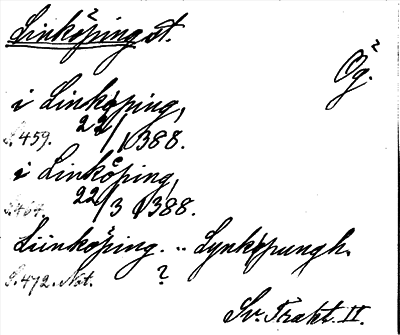 Linköping st.
Ög.
i Linköping,
S. 459. 22/1 1388.
i Linköping,
S. 464. 22/3 1388.
Liinköping. .. Lynköpungh.
S. 472. Not. ?
Sv. Trakt. II.